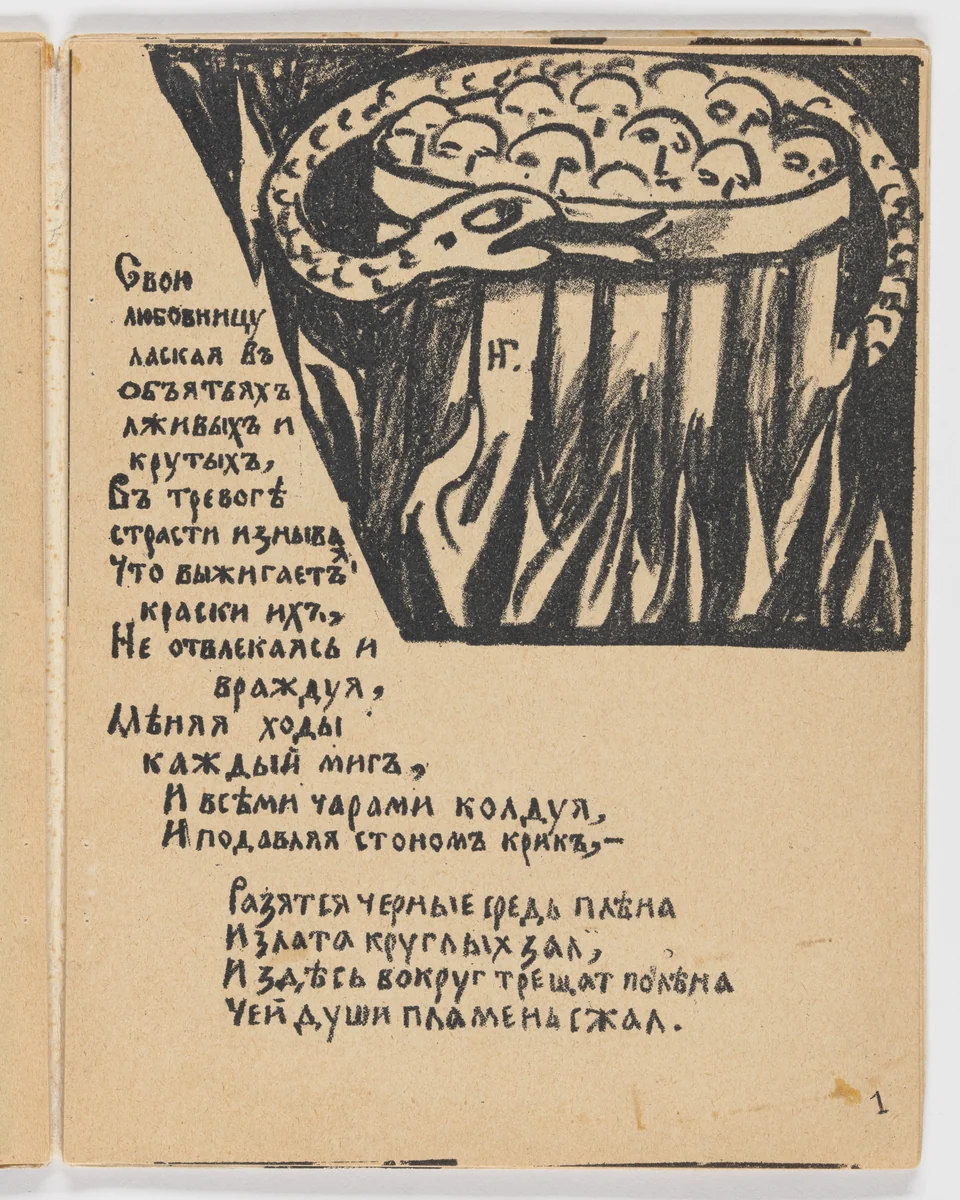 НГ.
Свою
любовницу
лаская въ
объятьяхъ
лживыхъ и
крутыхъ,
Въ тревогѣ
страсти изнывая
Что выжигаетъ
краски ихъ,
Не отвлекаясь и
враждуя,
Мѣняя ходы
каждый мигъ,
И всѣми чарами колдуя,
И подавляя стономъ крикъ,—
Разятся черные средь плѣна
И злата круглых зал,
И здѣсь вокруг трещат полѣна
Чей души пламень сжал.
1